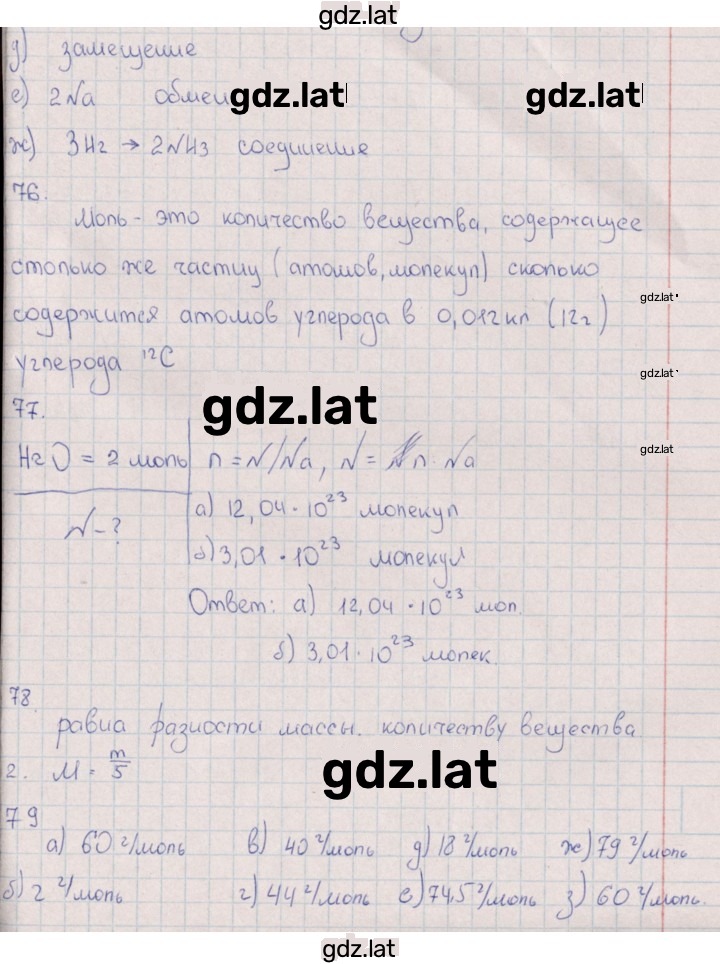 gdz.lat
д) замещение
е) 2Na обмен gdz.lat gdz.lat
ж) 3H2 → 2NH3 соединение
76.
Моль - это количество вещества, содержащее
столько же частиц (атомов, молекул) сколько
gdz.lat
содержится атомов углерода в 0,012кл (12г)
углерода ¹²C
gdz.lat
77.
gdz.lat
gdz.lat
H2O = 2 моль n = N/Na, N = n · Na
N - ?
а) 12,04 · 10²³ молекул
б) 3,01 · 10²³ молекул
Ответ: а) 12,04 · 10²³ мол.
б) 3,01 · 10²³ молек.
78.
равна разности массы. количеству вещества
2. M = m/5
gdz.lat
79
а) 60 г/моль в) 40 г/моль д) 18 г/моль ж) 79 г/моль
б) 2 г/моль г) 44 г/моль е) 74,5 г/моль з) 60 г/моль.
gdz.lat